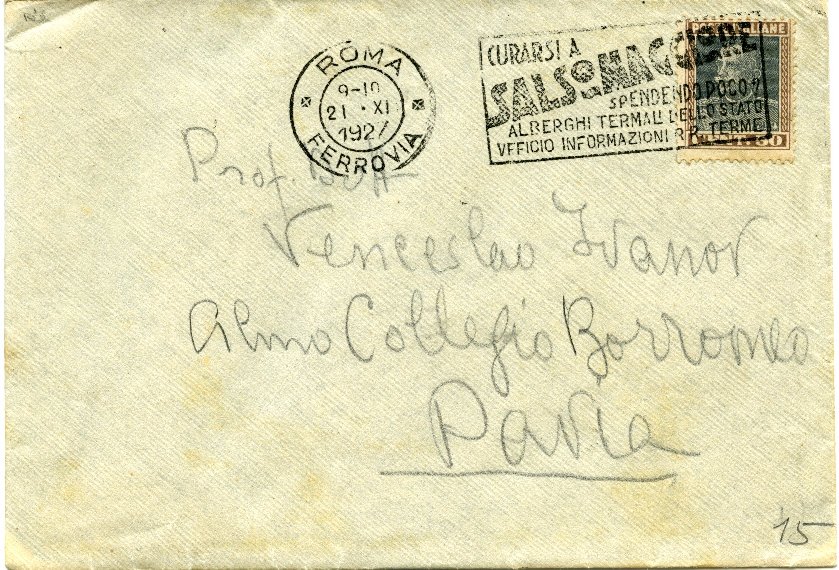 ROMA
9-10
21 · XI
1927
FERROVIA
CURARSI A
SALSOMAGGIORE
SPENDENDO POCO?
ALBERGHI TERMALI DELLO STATO
VFFICIO INFORMAZIONI R.R. TERME
POSTE ITALIANE
Prof. Dott
Venceslao Ivanov
Almo Collegio Borromeo
Pavia
15